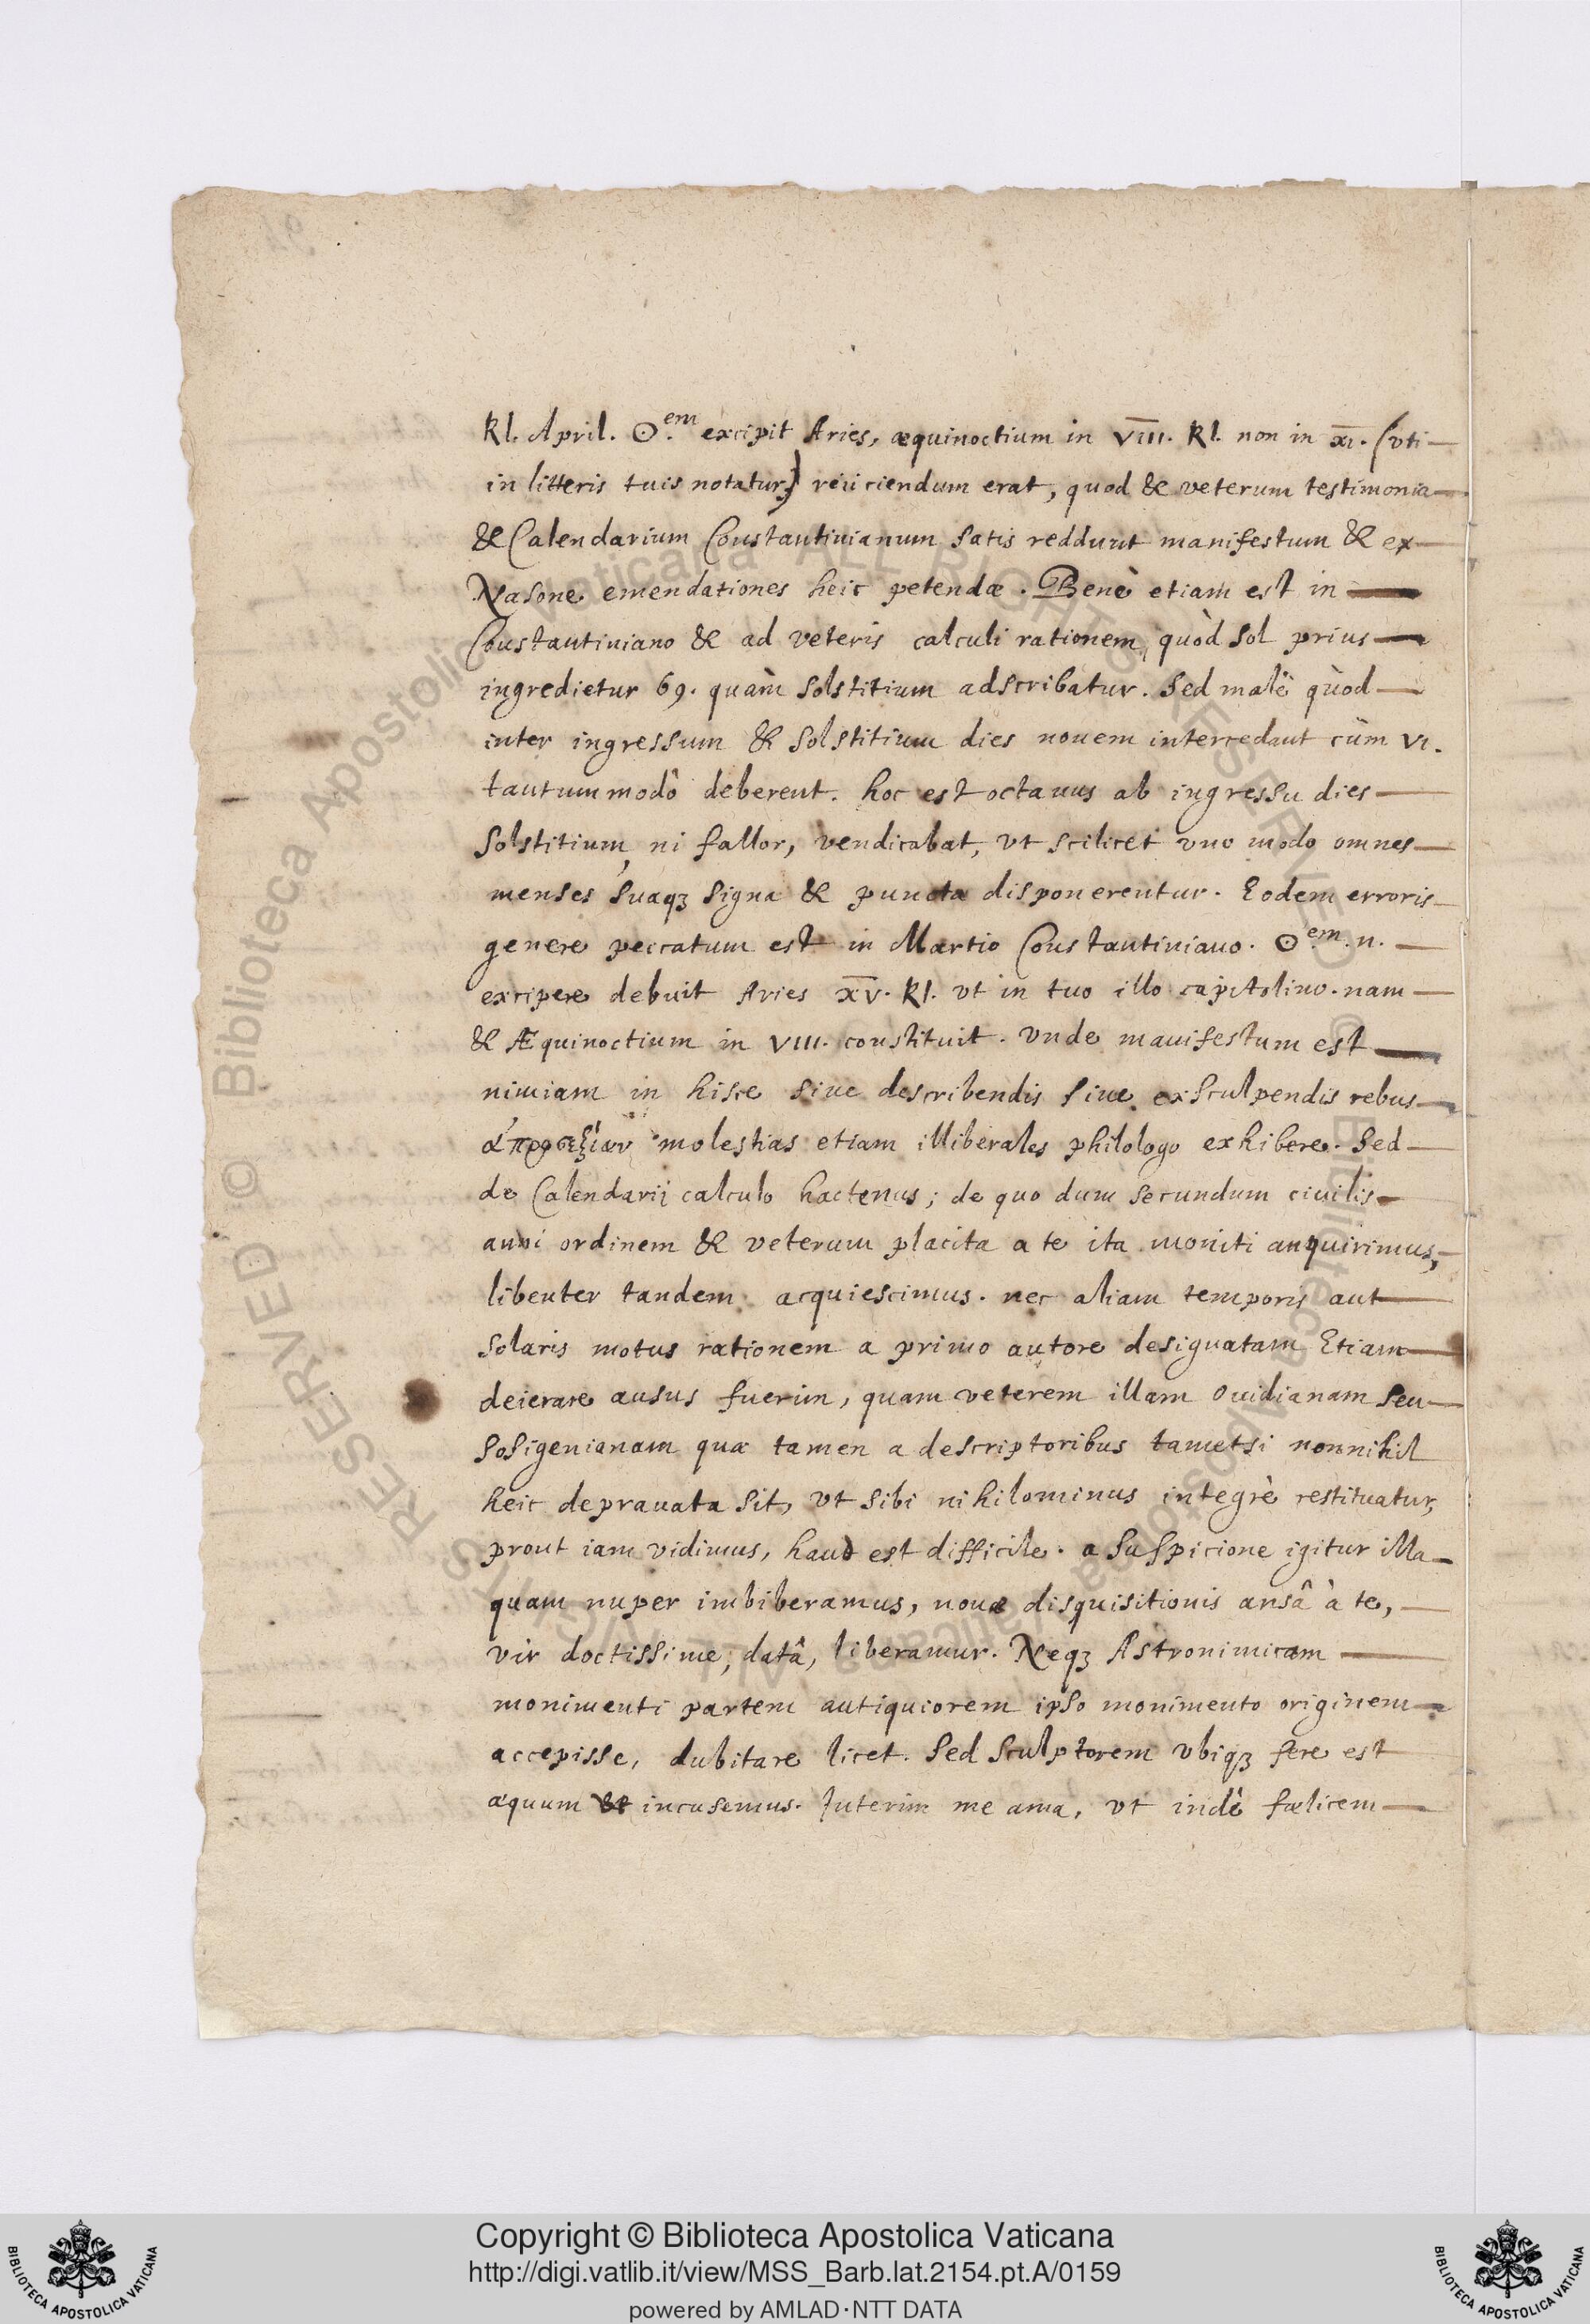 Kl. April. ☉.em excipit Aries, æquinoctium in VIII. Kl. non in XI. (vti
in litteris tuis notatur) reiiciendum erat, quod & veterum testimonia
& Calendarium Constantinianum satis reddunt manifestum & ex
Nasone emendationes heic petendæ. Benè etiam est in
Constantiniano & ad veteris calculi rationem, quòd sol prius
ingredietur 69. quàm solstitium adscribatur. Sed malè quòd
inter ingressum & solstitium dies nouem intercedant cùm VI.
tantummodò deberent. hoc est octauus ab ingressu dies
solstitium, ni fallor, vendicabat, vt scilicet vno modo omnes
menses suaqꝫ signa & puncta disponerentur. Eodem erroris
genere peccatum est in Martio Constantiniano. ☉.em n.
excipere debuit Aries XV. Kl. vt in tuo illo capitolino. nam
& Æquinoctium in VIII. constituit. Vnde manifestum est
nimiam in hisce siue describendis siue exsculpendis rebus
ἀπροσεξίαν molestias etiam illiberales philologo exhibere. Sed
de Calendarij calculo hactenus; de quo dum secundum ciuilis
anni ordinem & veterum placita a te ita moniti anquirimus,
libenter tandem acquiescimus. nec aliam temporis aut
solaris motus rationem a primo autore designatam Etiam
deierare ausus fuerim, quam veterem illam Ouidianam seu
Sosigenianam quæ tamen a descriptoribus tametsi nonnihil
heic deprauata sit, vt sibi nihilominus integrè restituatur,
prout iam vidimus, haud est difficile. a suspicione igitur illa
quam nuper imbiberamus, nouæ disquisitionis ansâ à te,
vir doctissime, datâ, liberamur. Neqꝫ Astronimicam
monimenti partem antiquiorem ipso monimento originem
accepisse, dubitare licet. Sed sculptorem vbiqꝫ fere est
æquum vt incusemus. Interim me ama, vt indè fælicem
Copyright © Biblioteca Apostolica Vaticana
http://digi.vatlib.it/view/MSS_Barb.lat.2154.pt.A/0159
powered by AMLAD·NTT DATA